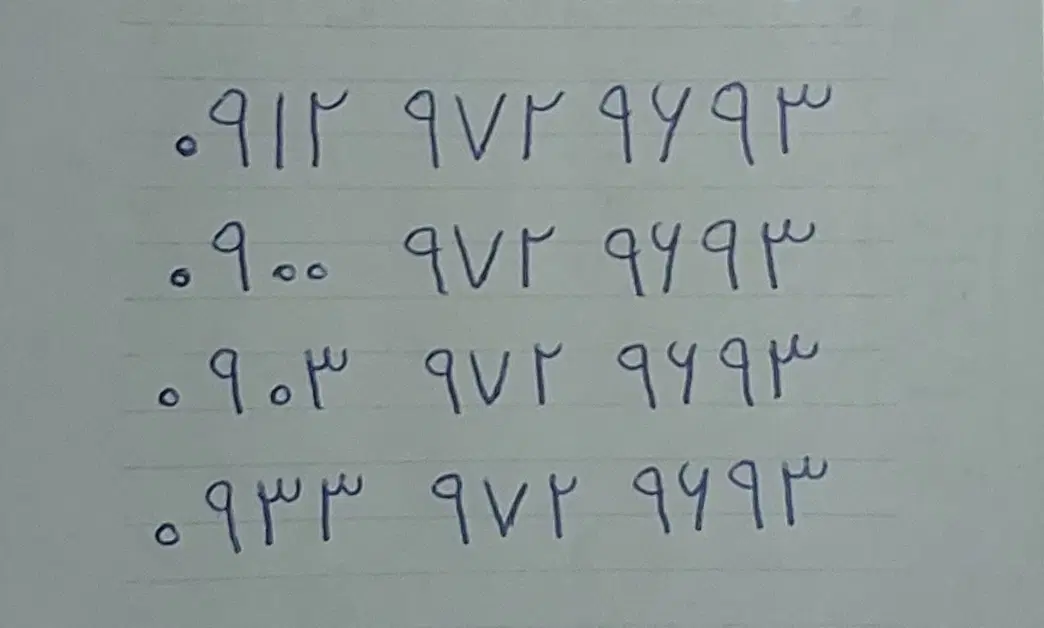 ۰۹۱۲ ۹۷۲ ۹۶۹۳
۰۹۰۰ ۹۷۲ ۹۶۹۳
۰۹۰۳ ۹۷۲ ۹۶۹۳
۰۹۳۳ ۹۷۲ ۹۶۹۳